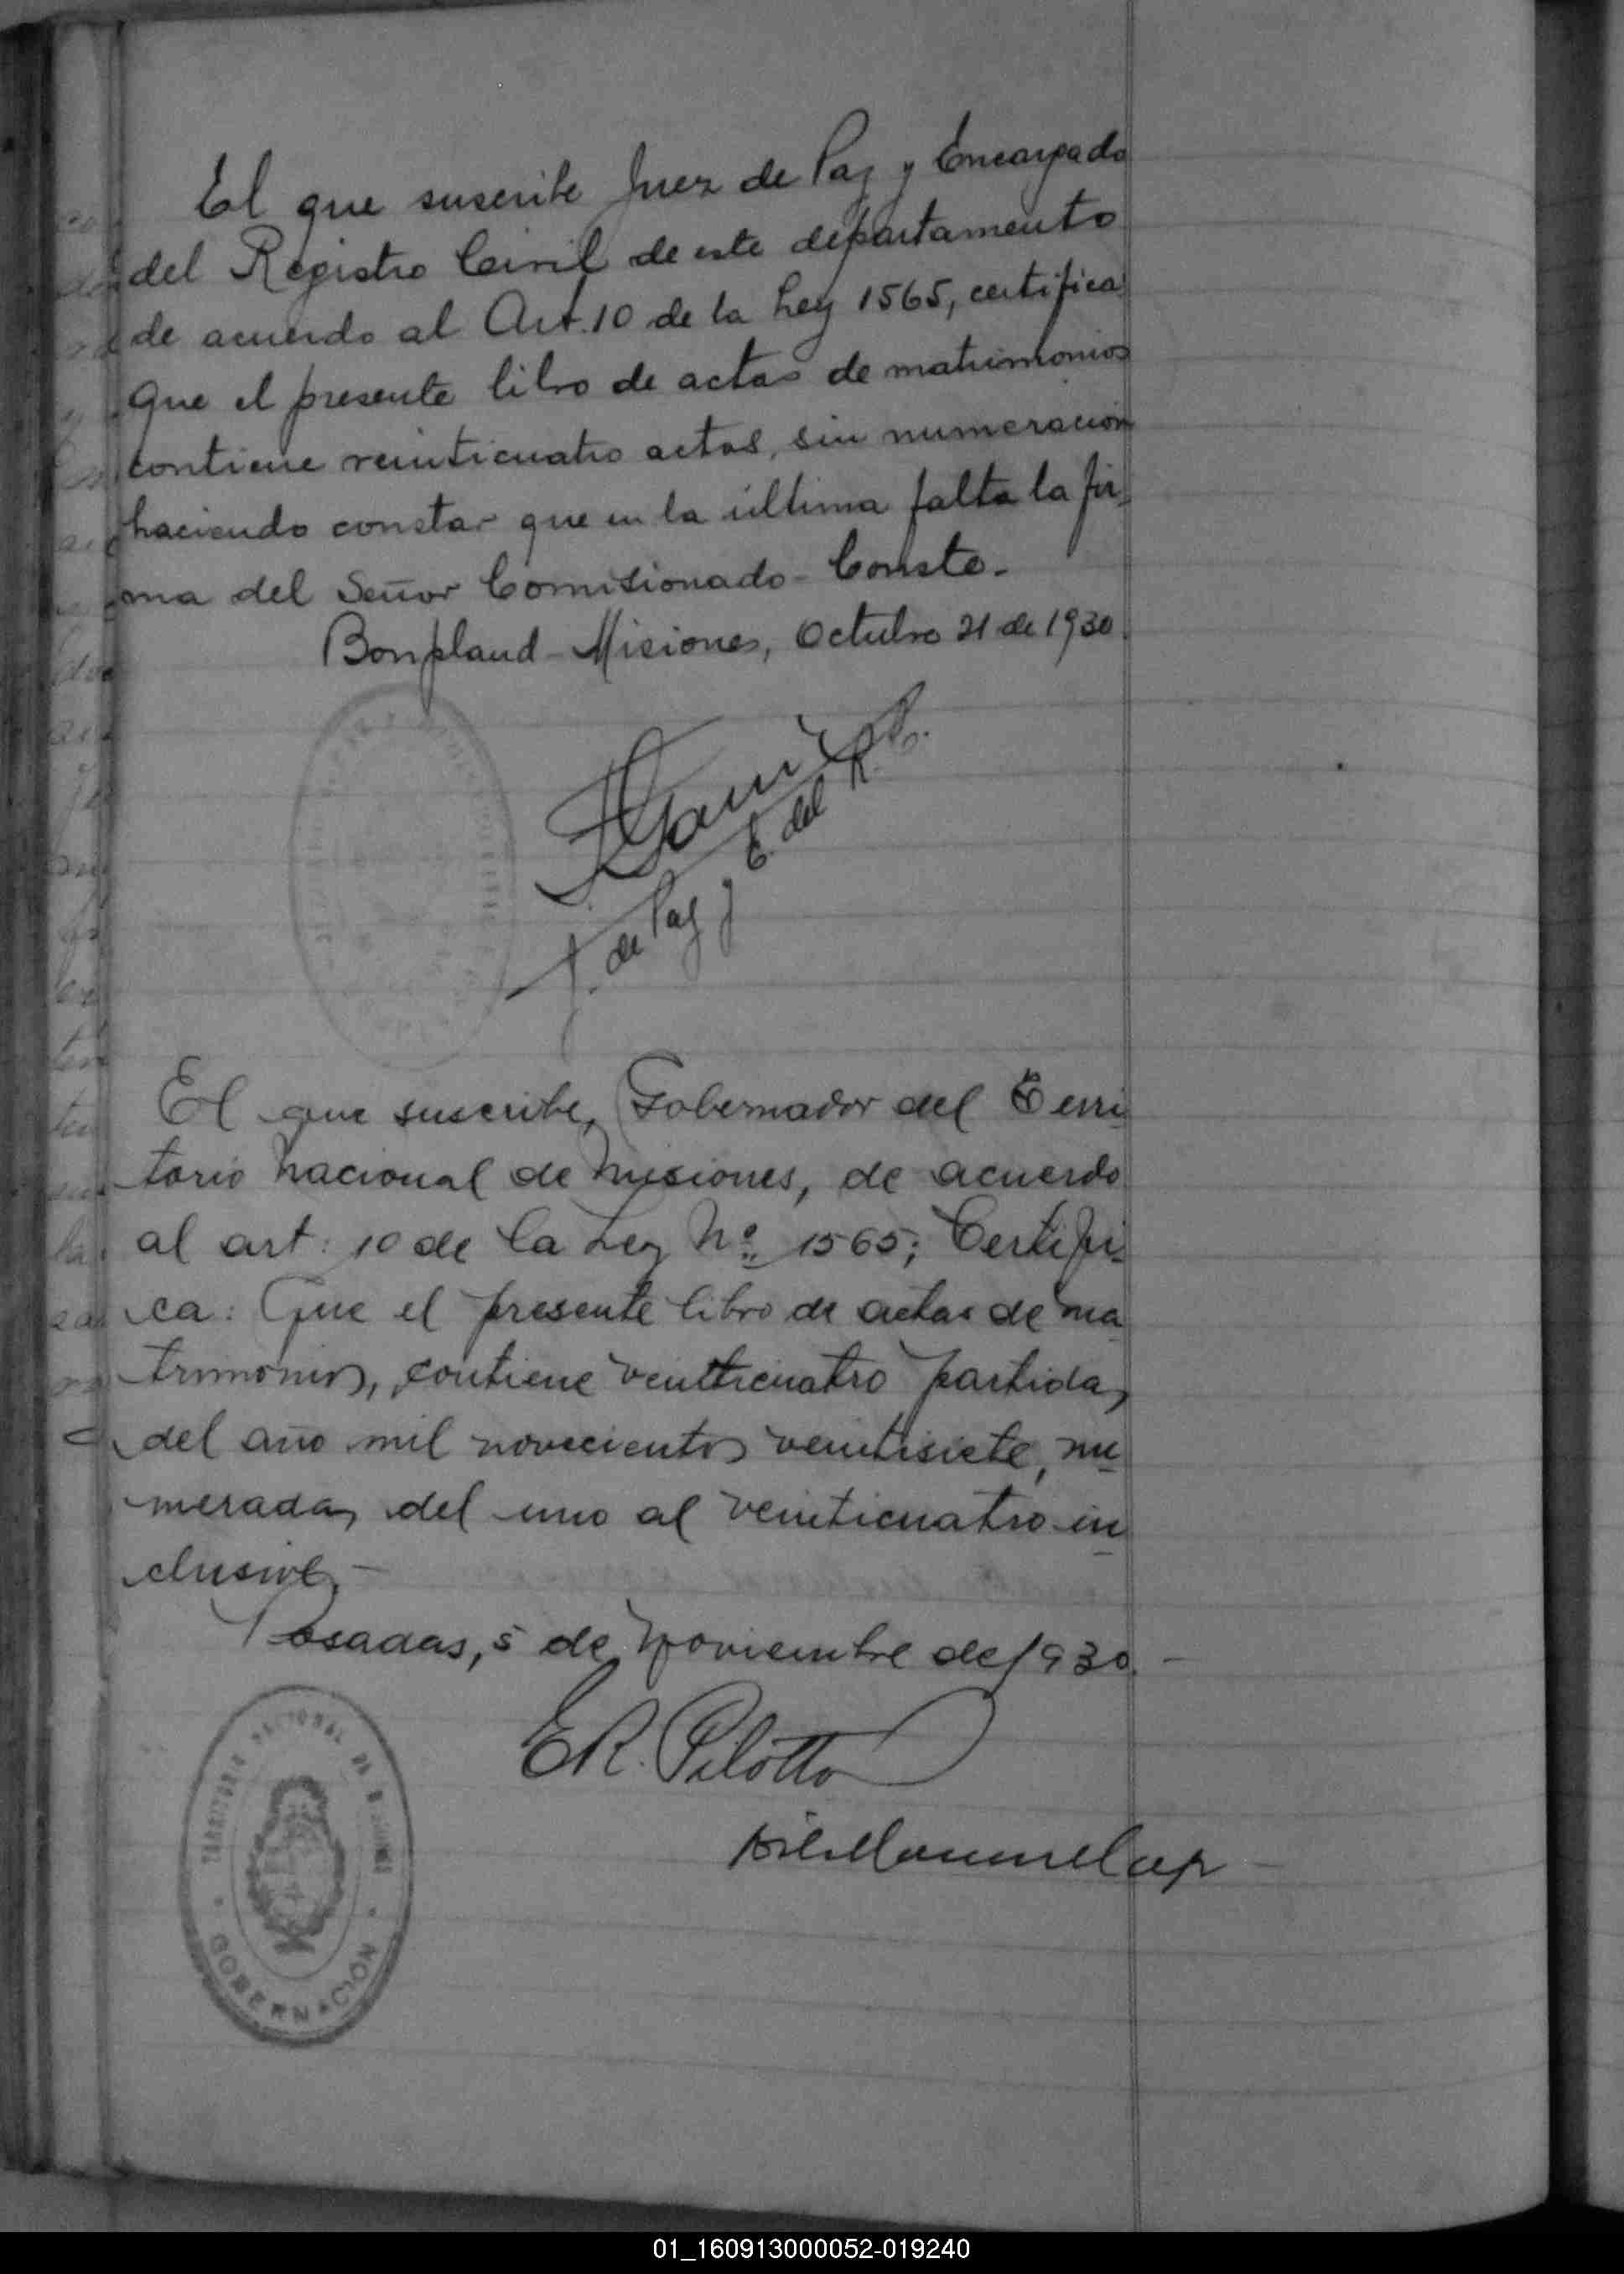 El que suscribe Juez de Paz y Encargado
del Registro Civil de este departamento
de acuerdo al Art. 10 de la Ley 1565, certifica:
Que el presente libro de actas de matrimonios
contiene veinticuatro actas, sin numeración
haciendo constar que en la última falta la fir-
ma del Señor Comisionado - Conste.
Bonpland - Misiones, Octubre 21 de 1930.
J. de Paz y E. del R. C.
El que suscribe, Gobernador del Terri
torio Nacional de Misiones, de acuerdo
al art: 10 de la Ley Nº 1565; Certifi-
ca: Que el presente libro de actas de ma
trimonios, contiene veinticuatro partidas
del año mil novecientos veintisiete, nu
meradas del uno al veinticuatro in
clusive.-
Posadas, 5 de Noviembre de 1930.-
E R. Pilotto
TERRITORIO NACIONAL DE MISIONES
GOBERNACIÓN
01_160913000052-019240